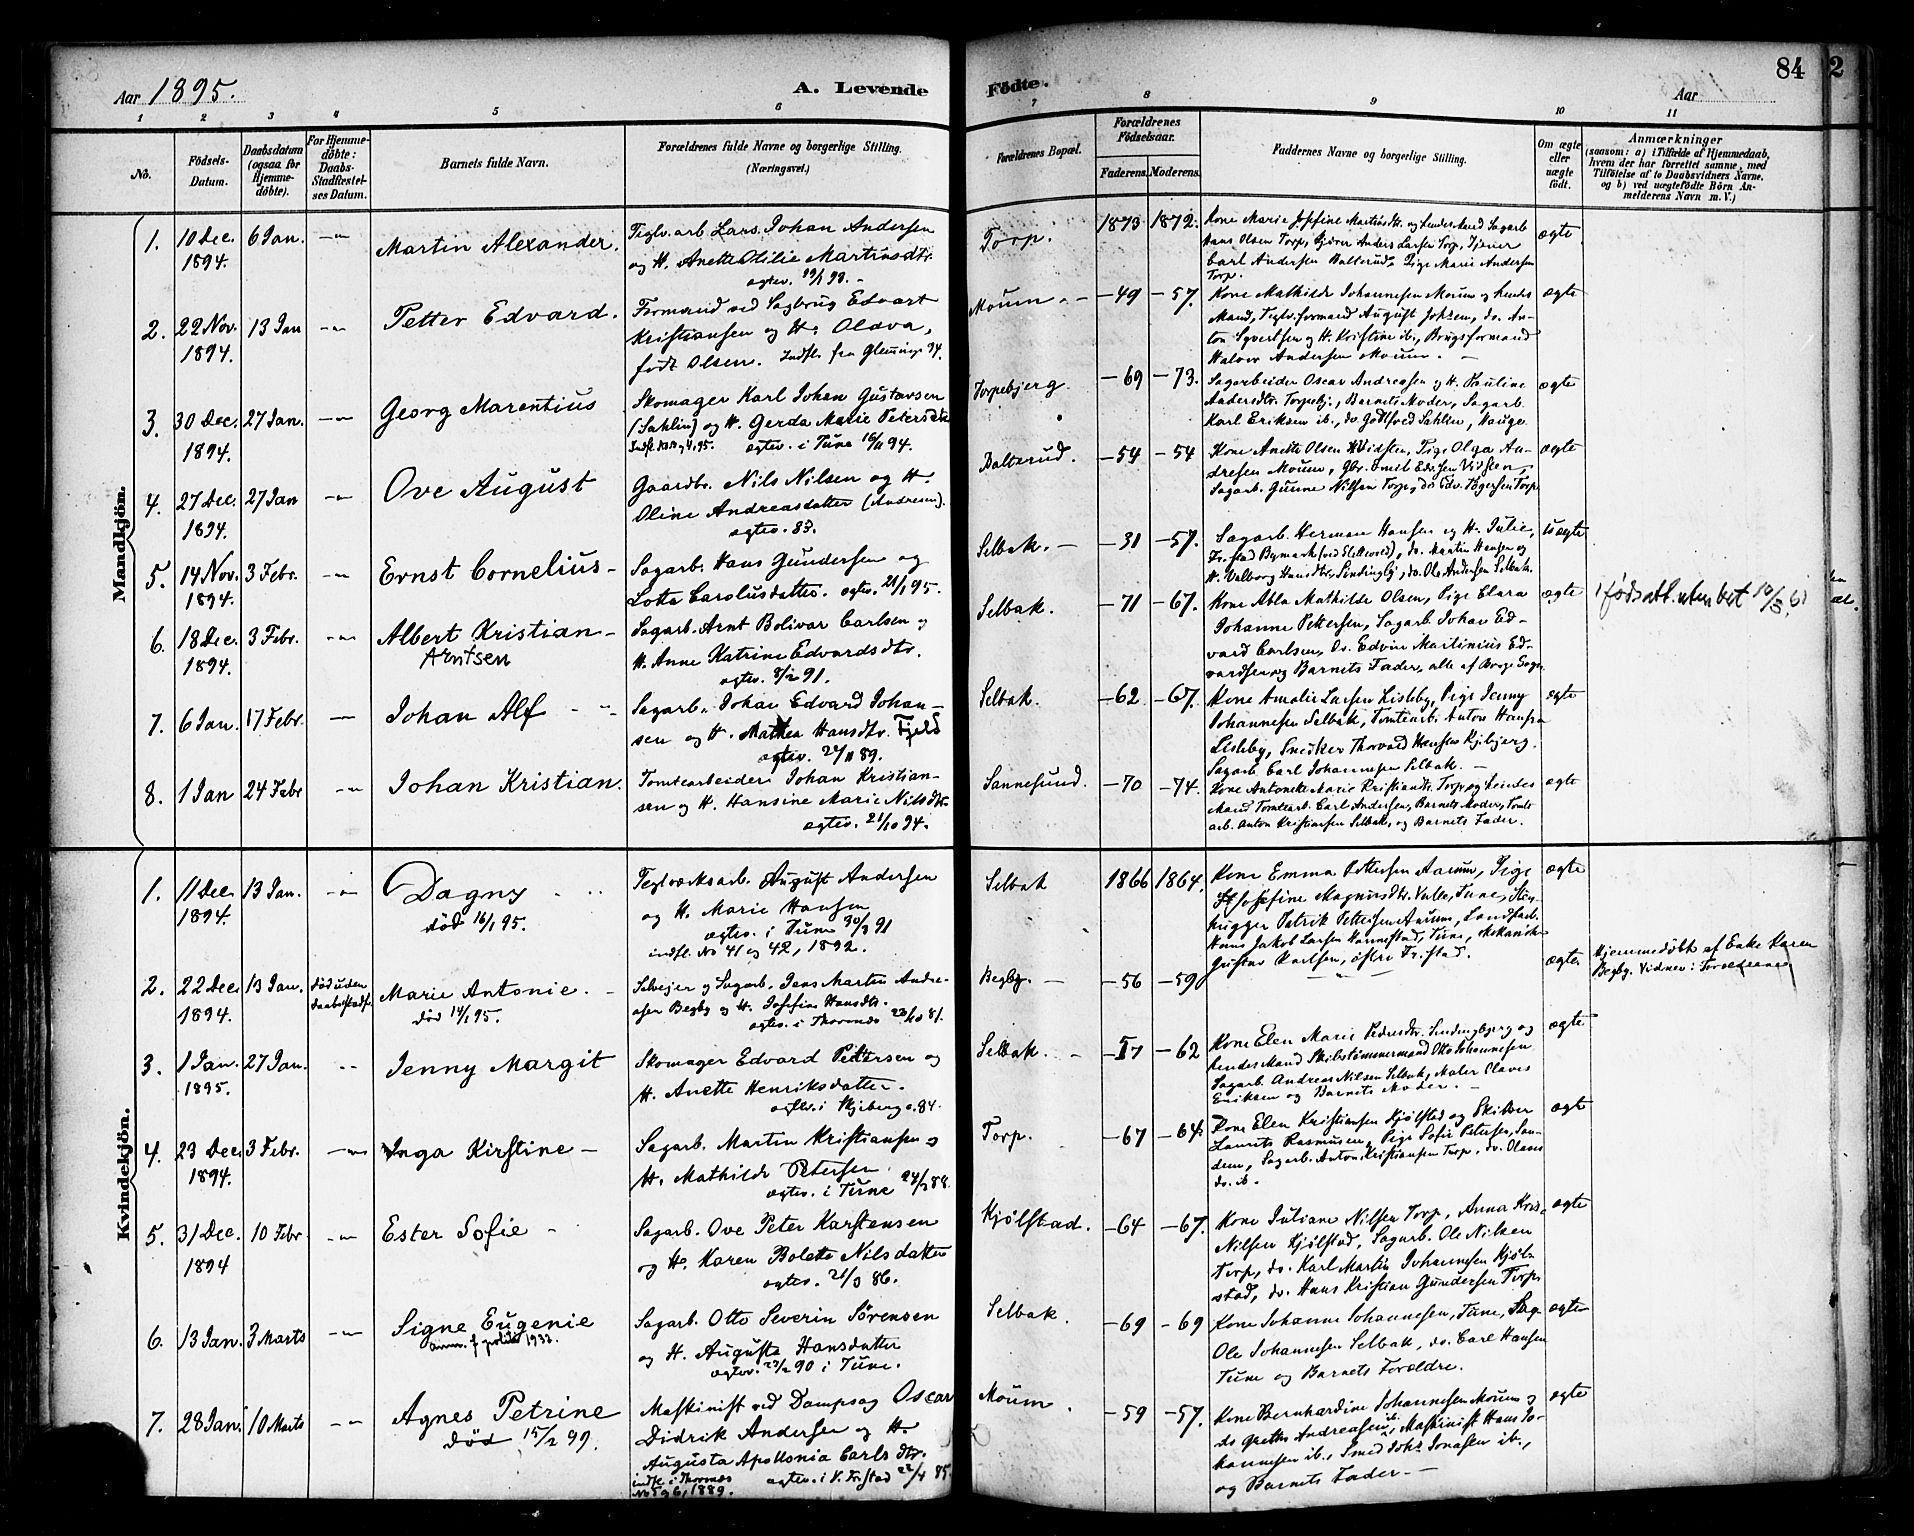 Aar 1895.
A. Levende
Fødte.
84
2
Aar
1 2 3 4 5 6 7 8 9 10 11
No.
Fødsels-
Datum.
Daabsdatum
(ogsaa for
Hjemme-
døbte).
For Hjemme-
døbte:
Daabs-
Stadfæstel-
ses Datum.
Barnets fulde Navn.
Forældrenes fulde Navne og borgerlige Stilling.
(Næringsvei.)
Forældrenes Bopæl.
Forældrenes
Fødselsaar.
Faderens. Moderens.
Faddernes Navne og borgerlige Stilling.
Om ægte
eller
uægte
født.
Anmærkninger
(saasom: a) i Tilfælde af Hjemmedaab,
hvem der har forrettet samme, med
Tilføielse af to Daabsvidners Navne.
og b) ved uægtefødte Børn An-
melderens Navn m. V.)
Mandkjön.
1. 10 Dec. 1894. 6 Jan.
Martin Alexander.
Teglv. arb Lars Johan Andersen
og H. Anette Otilie Martinsdtr.
Torp. 1873 1872.
Kone Marie Josfine Martinsdtr. og hendes Mand Sagarb
Hans Olsen Torp, Anders Larsen Torp, Tjener
Carl Andersen Balterud, Pige Marie Andersen
Torp.
ægte
2. 22 Nov. 1894. 13 Jan
Petter Edvard.
Formand ved Sagbrug Edvart
Kristiansen og H. Olava,
født Olsen. Indfl. fra Glemminge 94.
Moum -49 -57.
Kone Mathilde Johannesen Moum og hendes
Mand, Teglv. formand August Johsen, do. An-
ton Syvertsen og H. Kristine ib., Brugsformand
Halvor Andersen Moum.
ægte
3. 30 Dec. 1894. 27 Jan.
Georg Marentius
Skomager Karl Johan Gustavsen
(Sahlin) og H. Gerda Marie Petersdtr
ægtev. i Tune 16/11 94.
Torpebjerg. -69 -73.
Sagarbeider Oscar Andreasen og H. Pauline
Andersdtr. Torpebj., Barnets Moder, Sagarb.
Karl Eriksen ib., do Godtfred Sahlin, Hauge.
ægte
4. 27 Dec. 1894. 27 Jan
Ove August
Gaardbr. Nils Nilsen og H.
Oline Andreasdatter (Andresen).
ægtev. 83.
Balterud. -54 -54
Kone Anette Olsen Hvidsten, Pige Olga An-
dresen Moum,
Sagarb. Gunne Nilsen Torp,
ægte
5. 14 Nov. 1894. 3 Febr.
Ernst Cornelius
Sagarb. Hans Gundersen og
Lotte Carolusdatter. ægtev. 21/1 95.
Selbak. -31 -57.
Sagarb. Herman Hansen og H. Julie,
Fr.stad Bymark do. Martin Hansen og
H. Valborg Hansdtr, do. Ole Andersen Selbak.
Uægte
6. 18 Dec. 1894. 3 Febr.
Albert Kristian
Arntsen
Sagarb. Arnt Bolivar Carlsen og
H. Anne Katrine Edvardsdtr.
ægtev. 8/2 91.
Selbak. -71 -67.
Kone Abla Mathilde Olsen, Pige Clara
Johanne Pettersen, Sagarb. Johan Ed-
vard Carlsen, Do. Edvin Martinius Ed-
vardsen og Barnets Fader, alle af Borge Sogn
ægte
føds att. uten bet 10/3 61
7. 6 Jan. 17 Febr.
Johan Alf
Sagarb. Johan Edvard Johan-
sen og H. Mathea Hansdtr. Fjeld
ægtev. 24/11 89.
Selbak. -62 -67.
Kone Amalie Larsen Lisleby, Pige Jenny
Johannesen Selbak, Tomtearb. Anton Hansen
Lisleby, Snedker Thorvald Hansen Kjibjerg.
Sagarb. Carl Johannesen Selbak.
ægte
8. 1 Jan 24 Febr
Johan Kristian.
Tomtearbeider Johan Kristian-
sen og H. Hansine Marie Nilsdtr.
ægtev. 21/10 94.
Sannesund. -70 -74.
Kone Antonette Marie Kristiansdtr Torp og hendes
Mand Tomtearb. Carl Andersen, Barnets Moder, Tomte
arb. Anton Kristiansen Selbak, og Barnets Fader.
ægte
Kvindekjön.
1. 11 Dec. 1894. 13 Jan.
Dagny
død 16/1 95.
Teglværksarb. August Andersen
og H. Marie Hansen
ægtev. i Tune 30/3 91
indfl. No 41 og 42, 1892.
Selbak 1866 1864.
Kone Emma Pettersen Aarum, Pige
Josefine Magnusdtr. Tune, Sten-
hugger Petrik Pettersen Aarum, Landarb.
Hans Jakob Larsen Hannestad, Tune, Mekanik-
Gustav Karlsen, Østre Fr.stad.
ægte
2. 22 Dec. 1894. 13 Jan.
død uden
Daabsstadf.
Marie Antonie.
død 14/1 95.
Selveier og Sagarb. Jens Martin Andre-
asen Begby og H. Josefine Hansdtr.
Begby. -56 -59
ægte.
Hjemmedøbt af Enke Karen
Begby. Vidner: Forældrene
3. 1 Jan. 1895. 27 Jan.
Jenny Margit
Skomager Edvard Pettersen og
H. Anette Henriksdatter.
ægtev. i Skjeberg c. 84.
Selbak. -57 -62
Kone Elen Marie Pedersdtr. og
hendes Mand Skibstømmermand Otto Johannesen
Sagarb. Andreas Nilsen Selbak, Maler Olaves
Eriksen og Barnets Moder.
ægte
4. 23 Dec. 1894. 3 Febr.
Inga Kirstine
Sagarb. Martin Kristiansen og
H. Mathilde Petersen
ægtev. i Tune 24/3 88.
Torp. -67 -64.
Kone Elen Kristiansen Kjølstad og Skibver
Laurits Rasmusen, Pige Sofie Petersen,
Sagarb. Anton Kristiansen Torp, do. Olaus
do. ib.
ægte
5. 31 Dec. 1894 10 Febr.
Ester Sofie
Sagarb. Ove Peter Karstensen
og H. Karen Bolette Nilsdatter
ægtev. 21/3 86.
Kjølstad. -64 -67.
Kone Juliane Nilsen Torp, Anna Kris.
Nilsen Kjølstad, Sagarb. Ole Nilsen
Torp, do. Karl Martin Johannesen Kjøl-
stad, do. Hans Kristian Gundersen Torp.
ægte
6. 13 Jan. 3 Marts
Signe Eugenie
1933.
Sagarb. Otto Severin Sørensen
og H. Augusta Hansdatter
ægtev. 23/2 90 i Tune.
Selbak. -69 -69
Kone Johanne Johannesen, Tune, Sag-
Ole Johannesen Selbak, do. Carl Hansen
Tune og Barnets Forældre.
ægte
7. 28 Jan. 10 Marts
Agnes Petrine
død 15/2 99.
Maskinist ved Dampsag Oscar
Didrik Andersen og H.
Augusta Apollonia Carlsdtr.
ægtev. i V. Fr.stad 85.
Moum. -59 -57.
Kone Bernhardine Johannesen Moum og
do Grethe Andreasen ib., Maskinist Hans Jo-
hannesen ib., Smed Johs. Jonasen ib.,
og Barnets Fader.
ægte